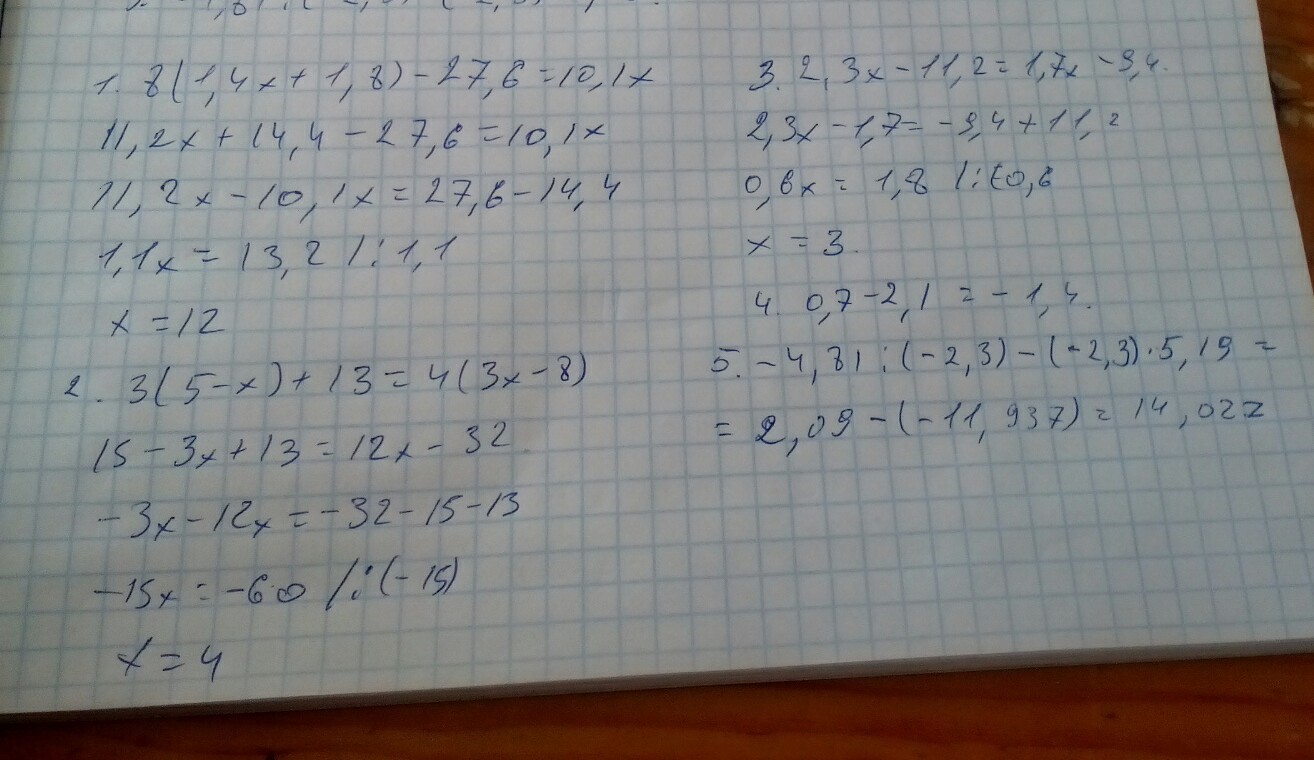 1. 8(1,4x+1,8)-27,6=10,1x
11,2x+14,4-27,6=10,1x
11,2x-10,1x=27,6-14,4
1,1x=13,2 /:1,1
x=12
2. 3(5-x)+13=4(3x-8)
15-3x+13=12x-32
-3x-12x=-32-15-13
-15x=-60 /:(-15)
x=4
3. 2,3x-11,2=1,7x-9,4.
2,3x-1,7=-9,4+11,2
0,6x=1,8 /:(0,6
x=3.
4. 0,7-2,1=-1,4.
5. -4,81:(-2,3)-(-2,3)·5,19=
=2,09-(-11,937)=14,027